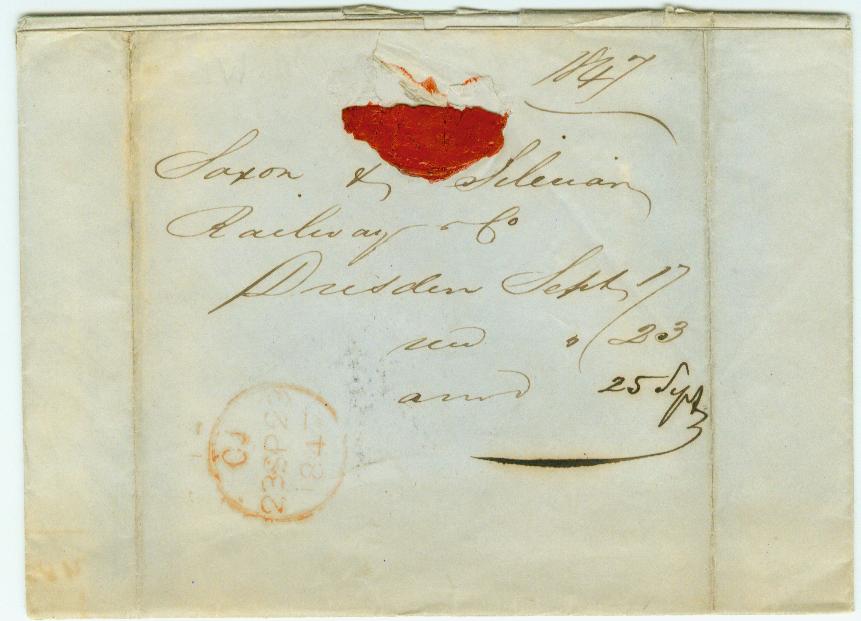 1847
Saxon & Silesian
Railway Co
Dresden Sept 17
recd " 23
answd 25 Sept
CJ
23SP23
1847